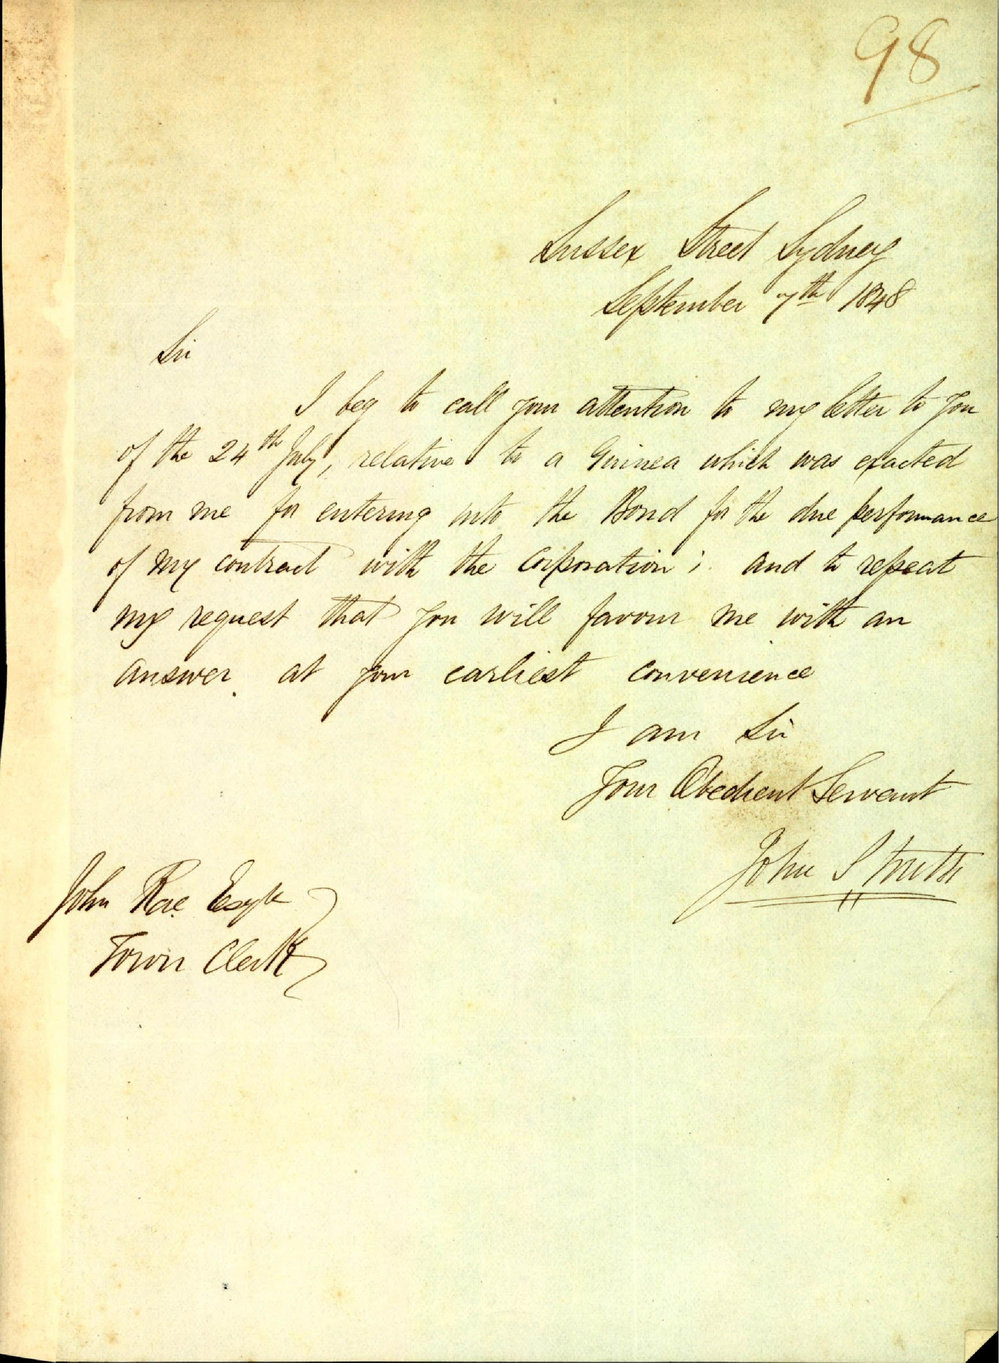 98
Sussex Street Sydney
September 7th 1848
Sir
I beg to call your attention to my letter to you
of the 24th July, relative to a Guinea which was exacted
from me for entering into the Bond for the due performance
of my contract with the Corporation; and to repeat
my request that you will favour me with an
answer at your earliest convenience
I am Sir
Your Obedient Servant
John Struth
John Rae Esqre
Town Clerk